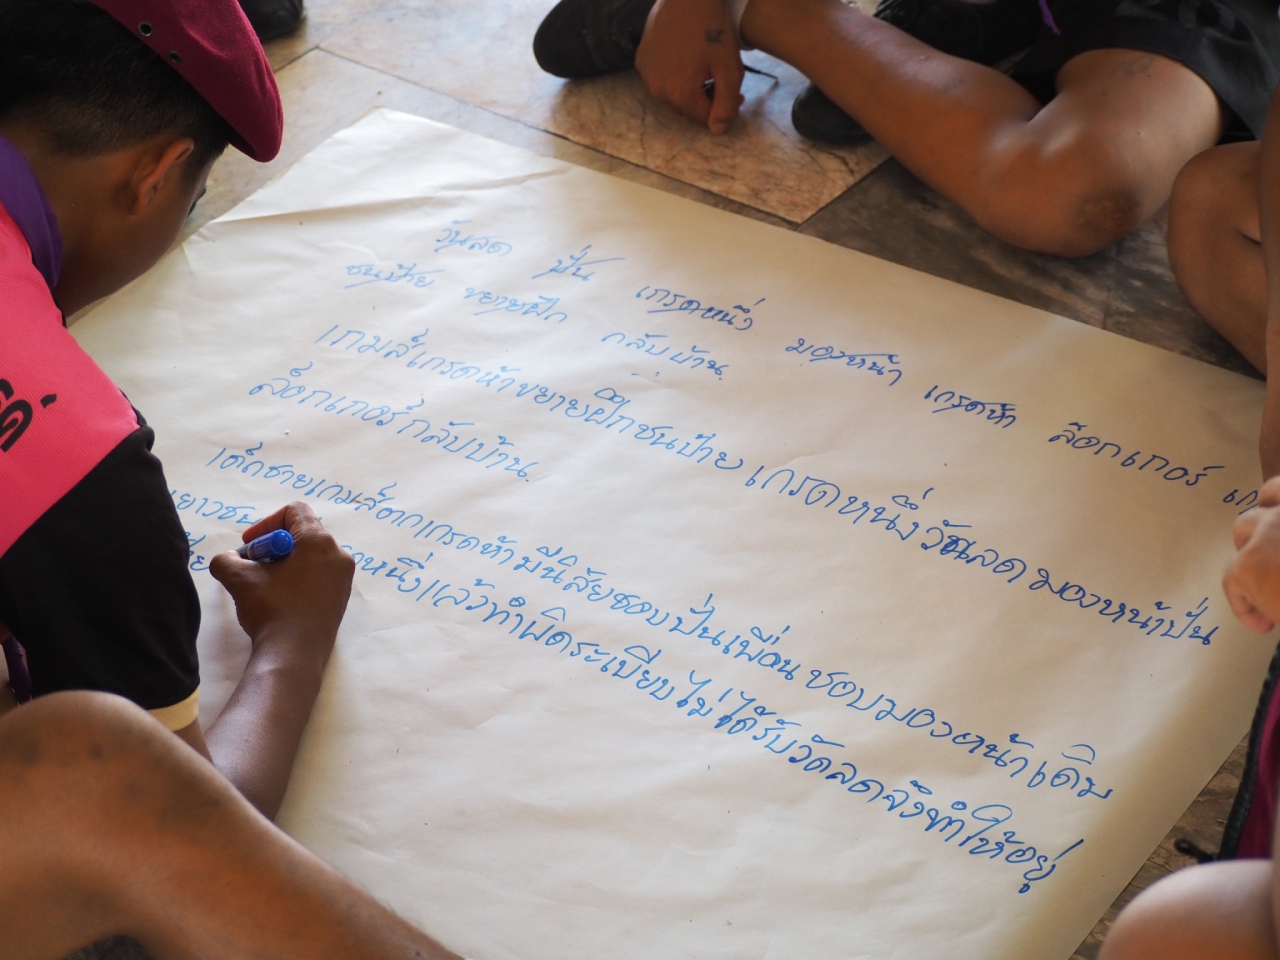 วันลด ปั่น เกรดหนึ่ง มองหน้า เกรดห้า ล็อกเกอร์
ชนป้าย ขยายฝึก กลับบ้าน.
เกมส์เกรดห้าขยายฝึกชนป้าย เกรดหนึ่งวันลดมองหน้าปั่น
ล็อกเกอร์กลับบ้าน.
เด็กชายเกมส์ตกเกรดห้ามีนิสัยชอบปั่นเพื่อน ชอบมองหน้าเดิม
เยาวชน หนึ่งแล้วทำผิดระเบียบไม่ได้รับวัดลดจึงทำให้อยู่